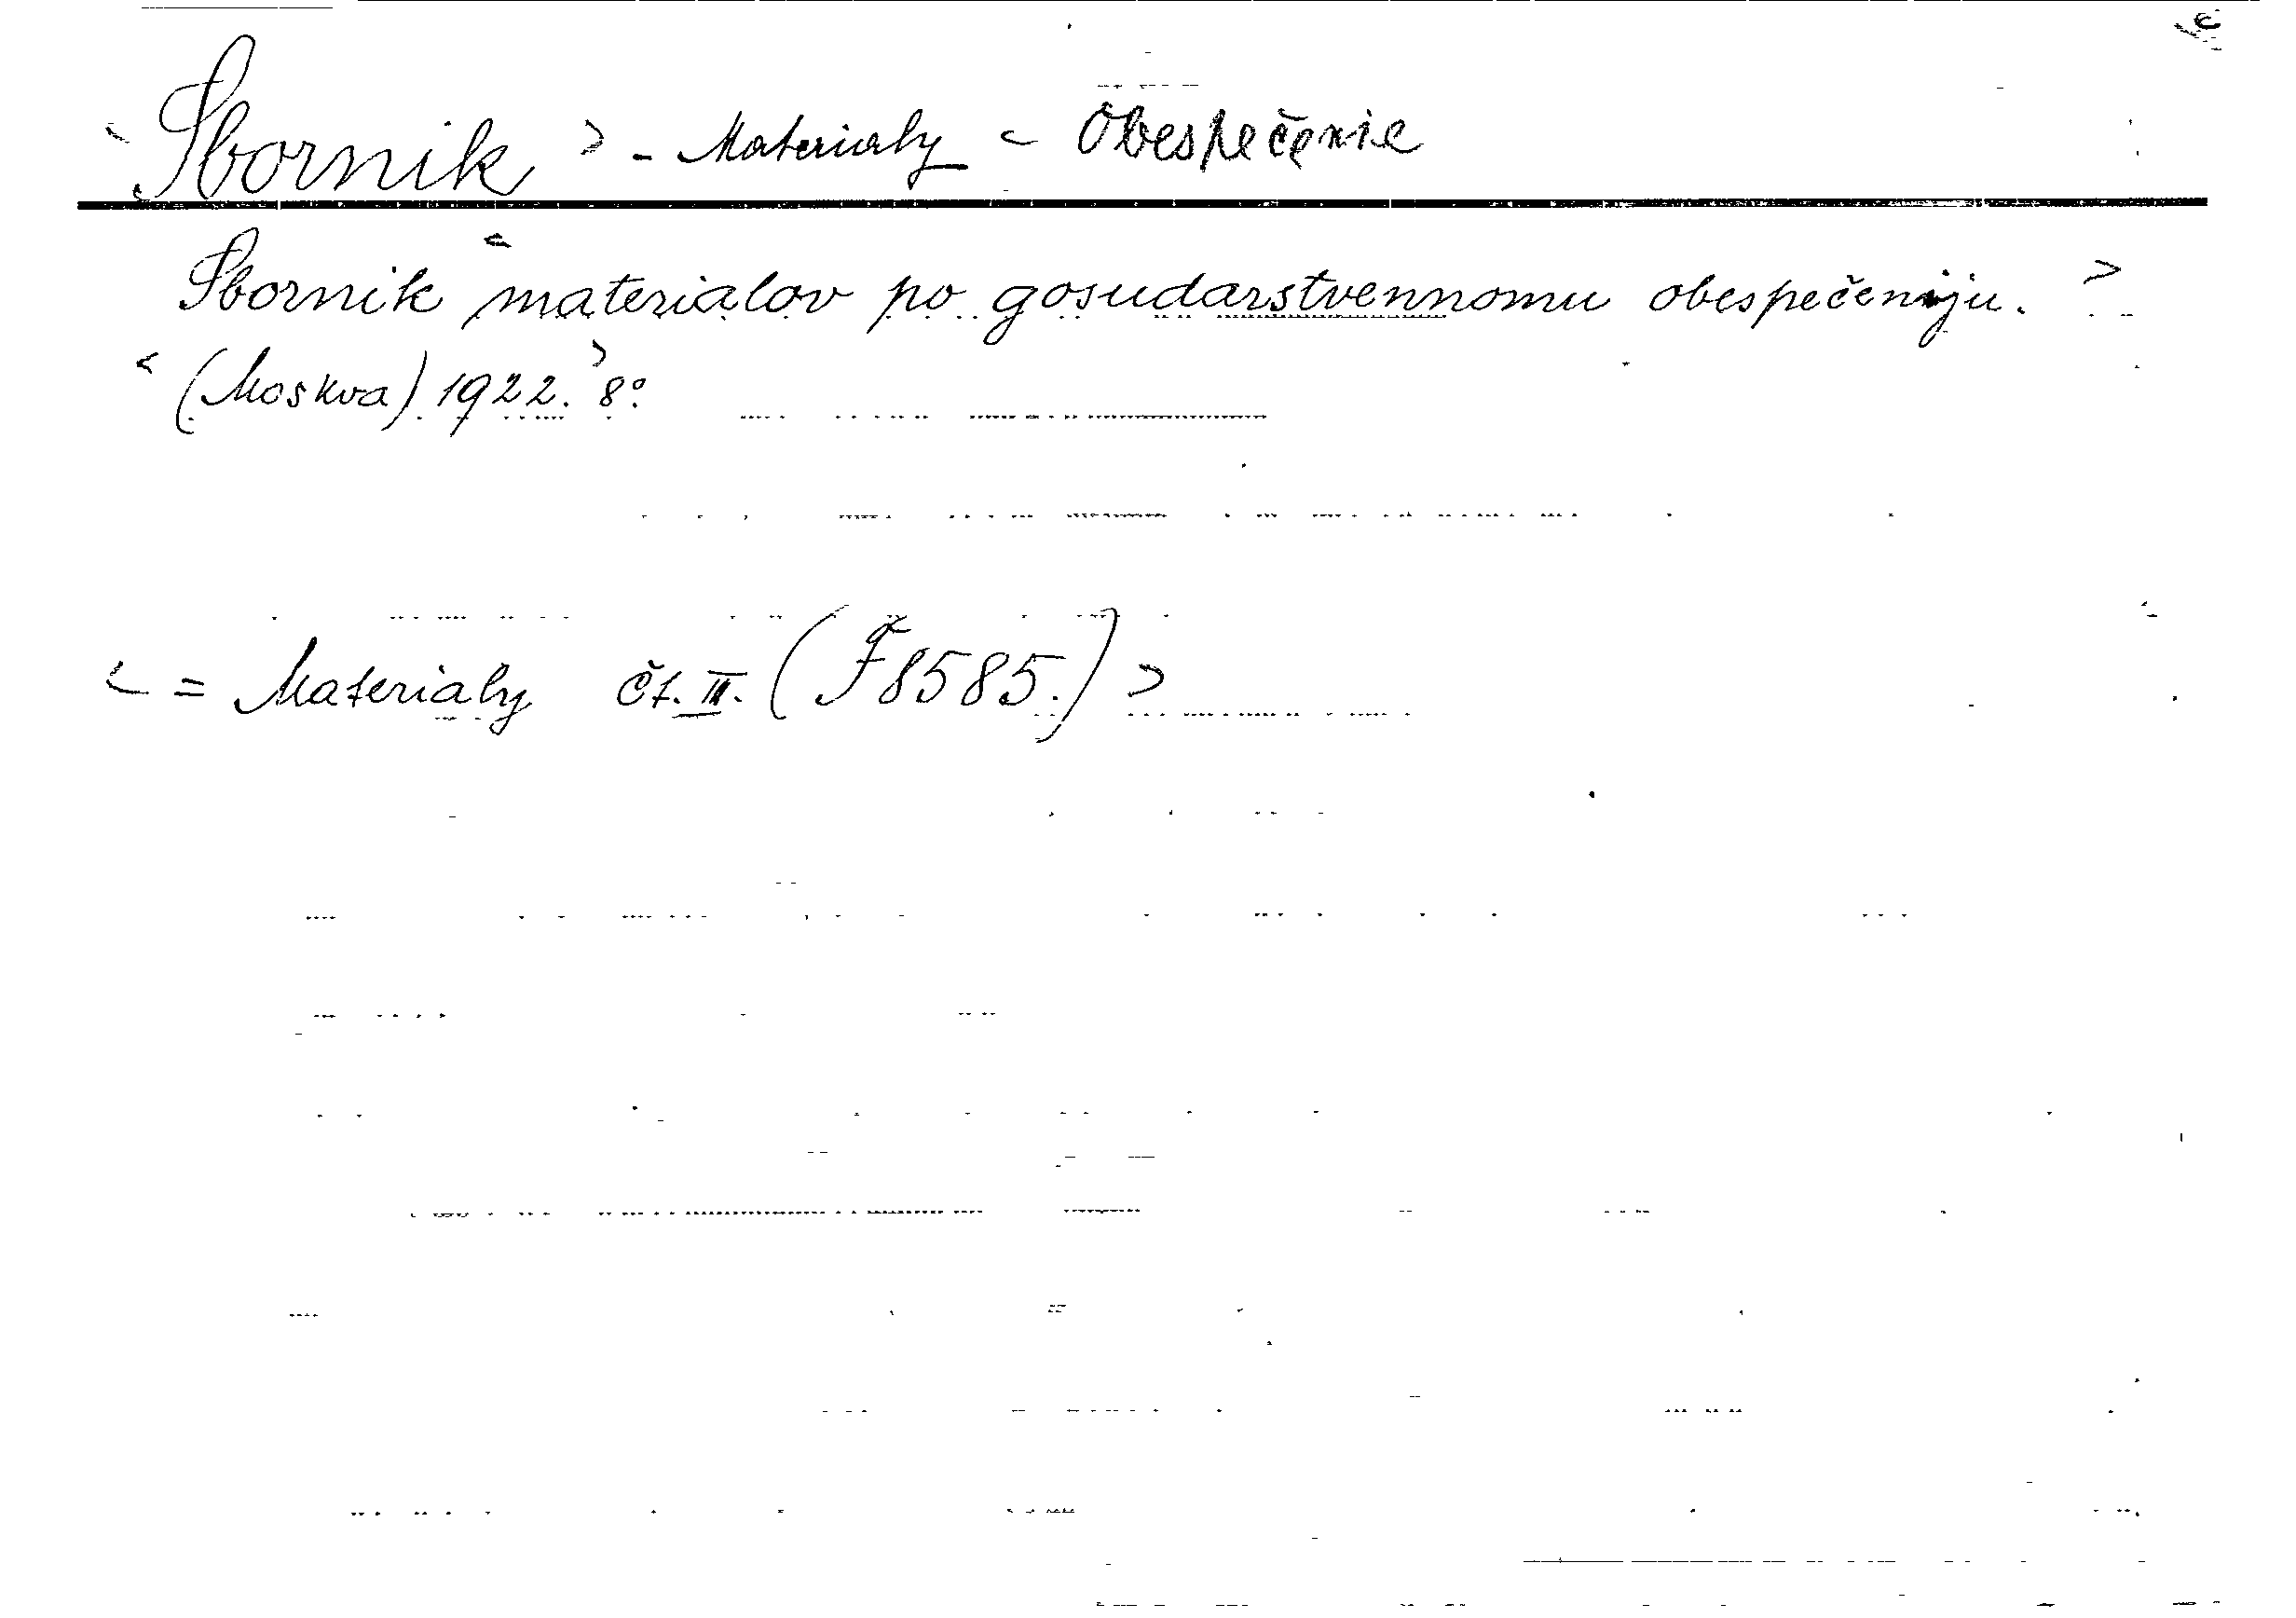 < Sbornik > - Materialy - Obespečenie
Sbornik < materialov po gosudarstvennomu obespečeniju. >
< (Moskva) 1922. > 8°.
< = Materialy Čt. III. (F 8585.) >